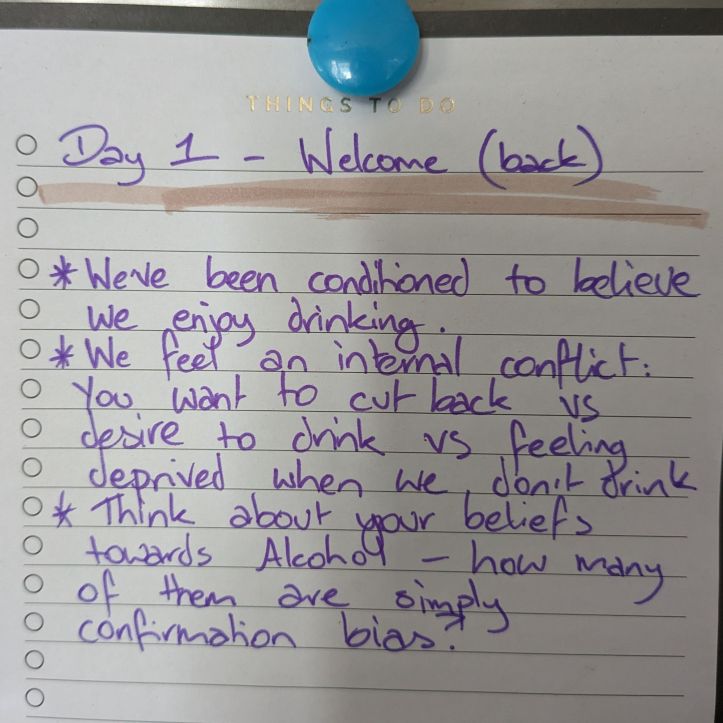 THINGS TO DO
Day 1 - Welcome (back)
* We've been conditioned to believe
we enjoy drinking.
* We feel an internal conflict:
You want to cut back vs
desire to drink vs feeling
deprived when we don't drink
* Think about your beliefs
towards Alcohol - how many
of them are simply
confirmation bias?